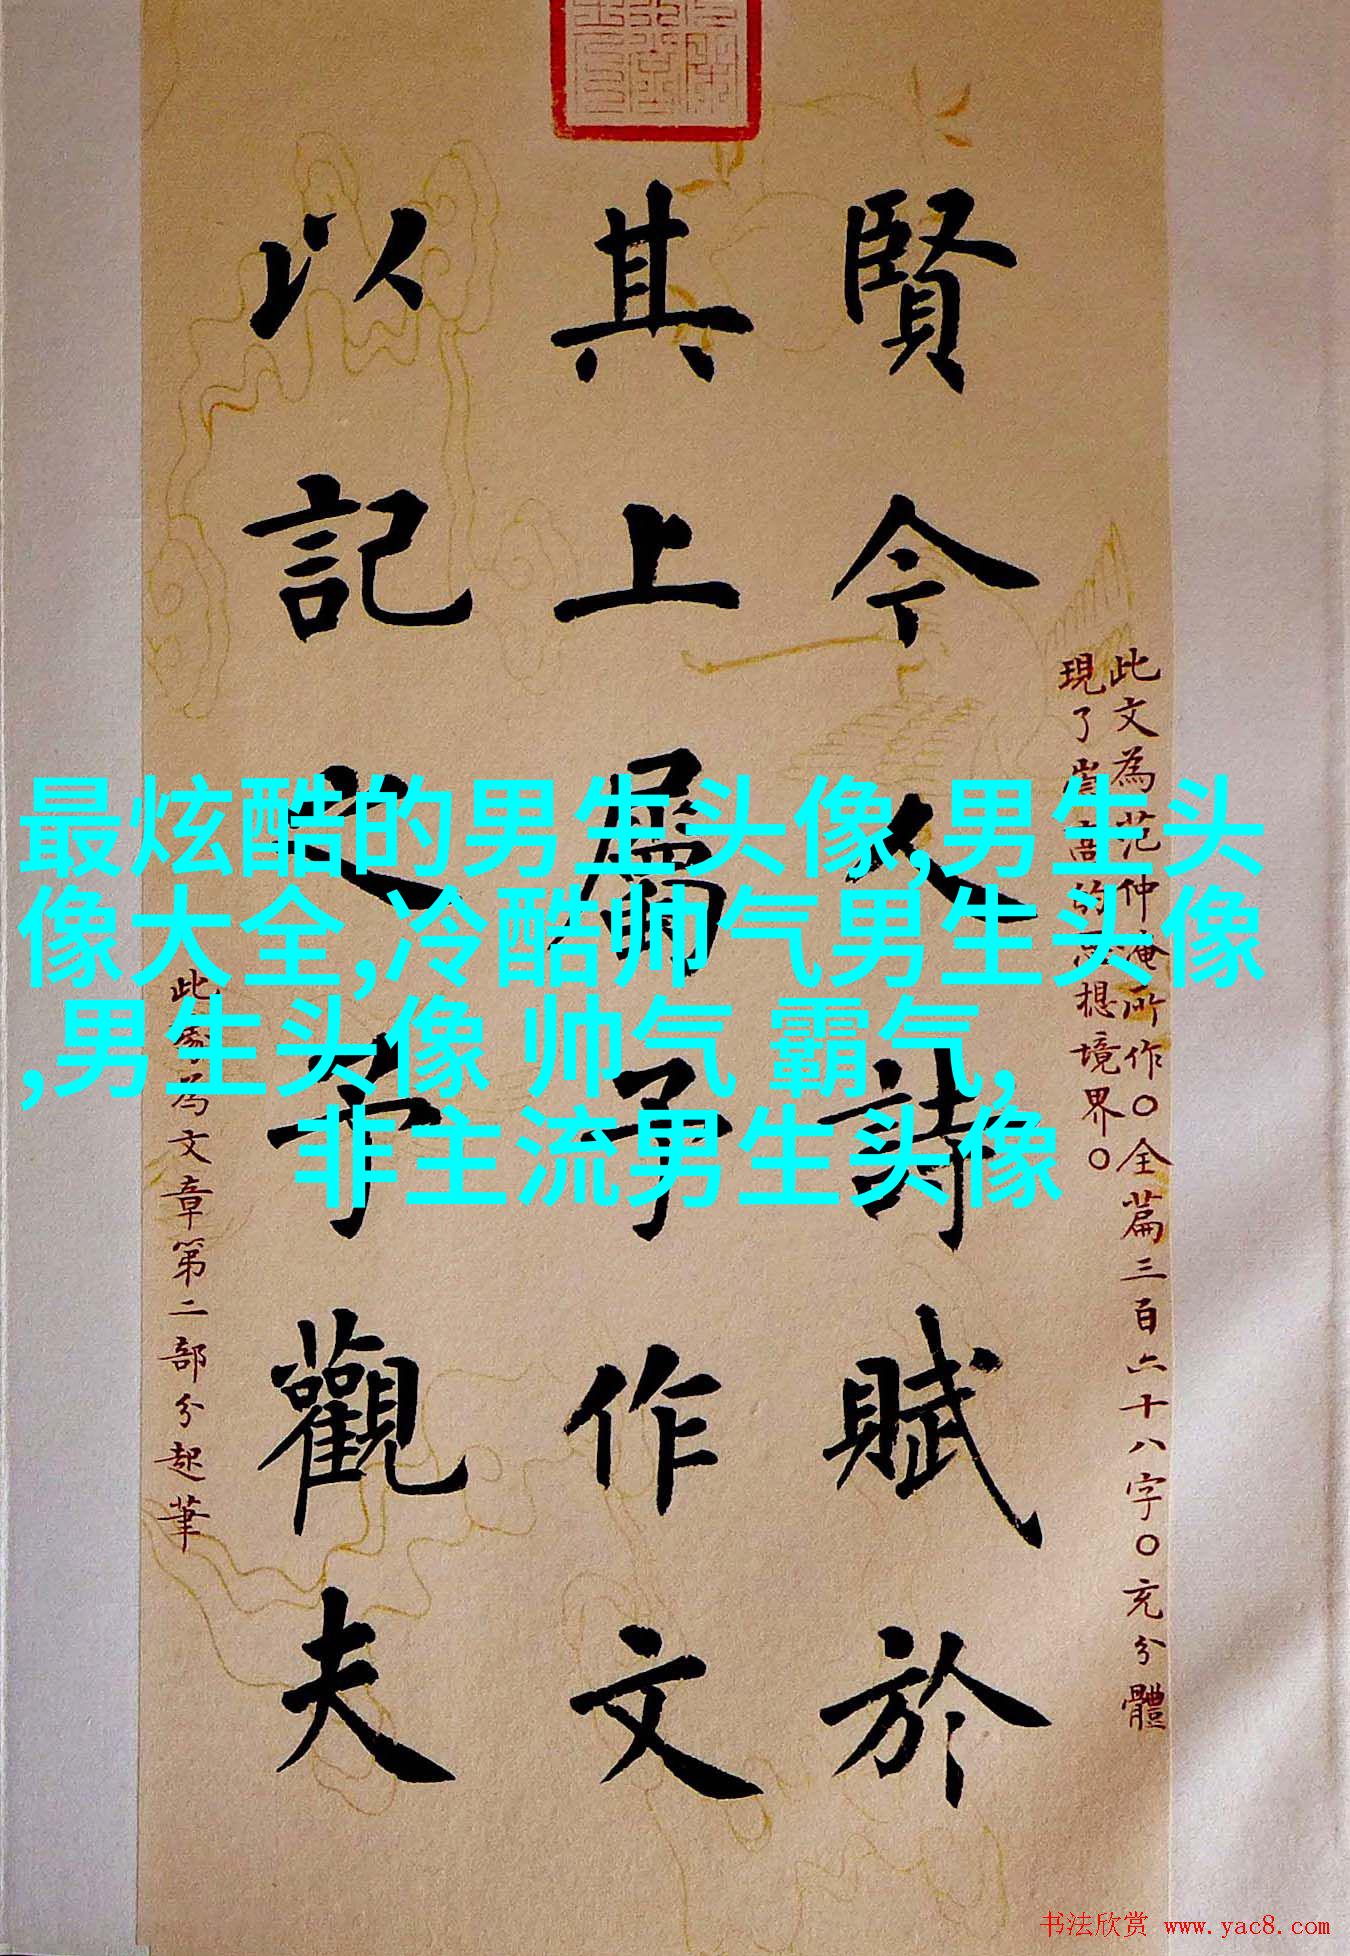 此文為范仲淹所作〇全篇三百六十八字〇充分體
現了崇高的思想境界〇
賢今人詩賦於
其上屬予作文
以記之予觀夫
此處為文章第二部分起筆
最炫酷的男生头像,男生头
像大全,冷酷帅气男生头像
,男生头像 帅气 霸气,
非主流男生头像
书法欣赏 www.yac8.com